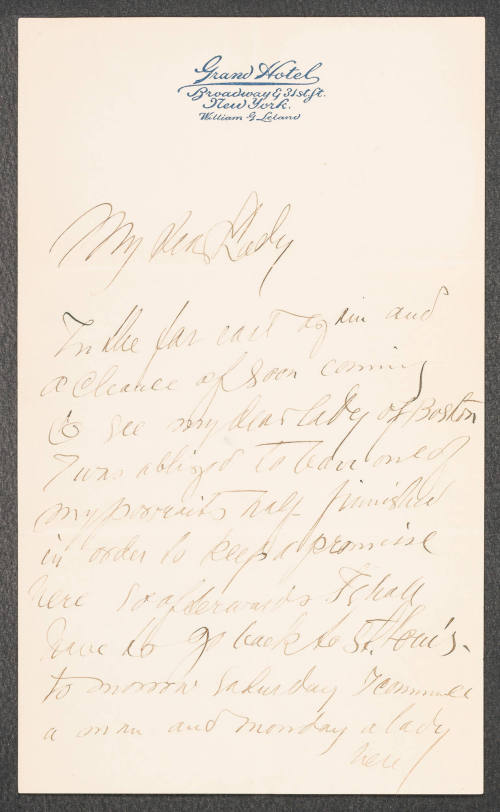 Grand Hotel
Broadway & 31st St.
New York.
William G. Leland
My dear Lady
In the far east again and
a chance of soon coming
to see my dear lady of Boston
I was obliged to leave one of
my portraits half finished
in order to keep a promise
here so afterwards I shall
have to go back to St. Louis.
to morrow Saturday I commence
a man and monday a lady
here